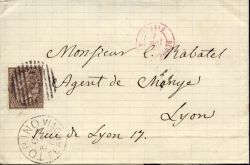 Monsieur C. Rabatel
Agent de Change
Lyon
Rue de Lyon 17.
TORINO